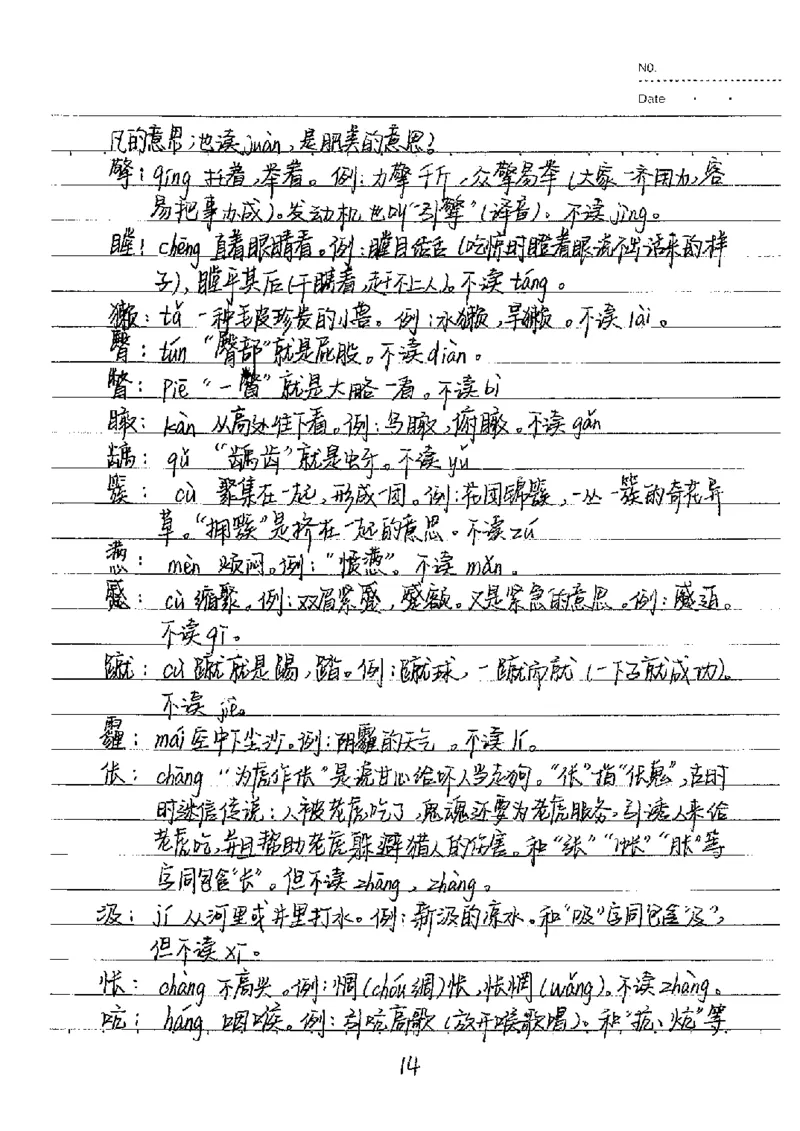 NO.
Date
凡的意思;也读juàn,是肥美的意思?
擎:qíng 托着,举着。例:力擎千斤,众擎易举(大家一齐用力,容
易把事办成)。发动机也叫“引擎”(译音)。不读jǐng。
瞠:chēng 直着眼睛看。例:瞠目结舌(吃惊时瞪着眼说不出话来的样
子),瞠乎其后(干瞒着,赶不上人)。不读táng。
獭:tǎ 一种毛皮珍贵的小兽。例:水獭,旱獭。不读lài。
臀:tún “臀部”就是屁股。不读diàn。
瞥:piē “一瞥”就是大略一看。不读bì
瞰:kàn 从高处往下看。例:鸟瞰,俯瞰。不读gǎn
龋:qǔ “龋齿”就是虫牙。不读yǔ
簇:cù 聚集在一起,形成一团。例:花团锦簇,一丛一簇的奇花异
草。“拥簇”是挤在一起的意思。不读zú
懑:mèn 烦闷。例:“愤懑”。不读mǎn。
蹙:cù 缩聚。例:双眉紧蹙,蹙额。又是紧急的意思。例:蹙迫。
不读qī。
蹴:cù 蹴就是踢,踏。例:蹴球,一蹴而就(一下子就成功)。
不读jiù。
霾:mái 空中下尘沙。例:阴霾的天气。不读lí。
伥:chāng “为虎作伥”是说甘心给坏人当走狗。“伥”指“伥鬼”,古时
时迷信传说:人被老虎吃了,鬼魂还要为老虎服务,引诱人来给
老虎吃,并且帮助老虎躲避猎人的伤害。和“张”“帐”“胀”等
字同包含“长”。但不读zhāng,zhàng。
汲:jí 从河里或井里打水。例:新汲的凉水。和“吸”字同包含“及”,
但不读xī。
怅:chàng 不高兴。例:惆(chóu绸)怅,怅惘(wǎng)。不读zhàng。
吭:háng 咽喉。例:引吭高歌(放开喉歌唱)。和“抗、炕”等
14